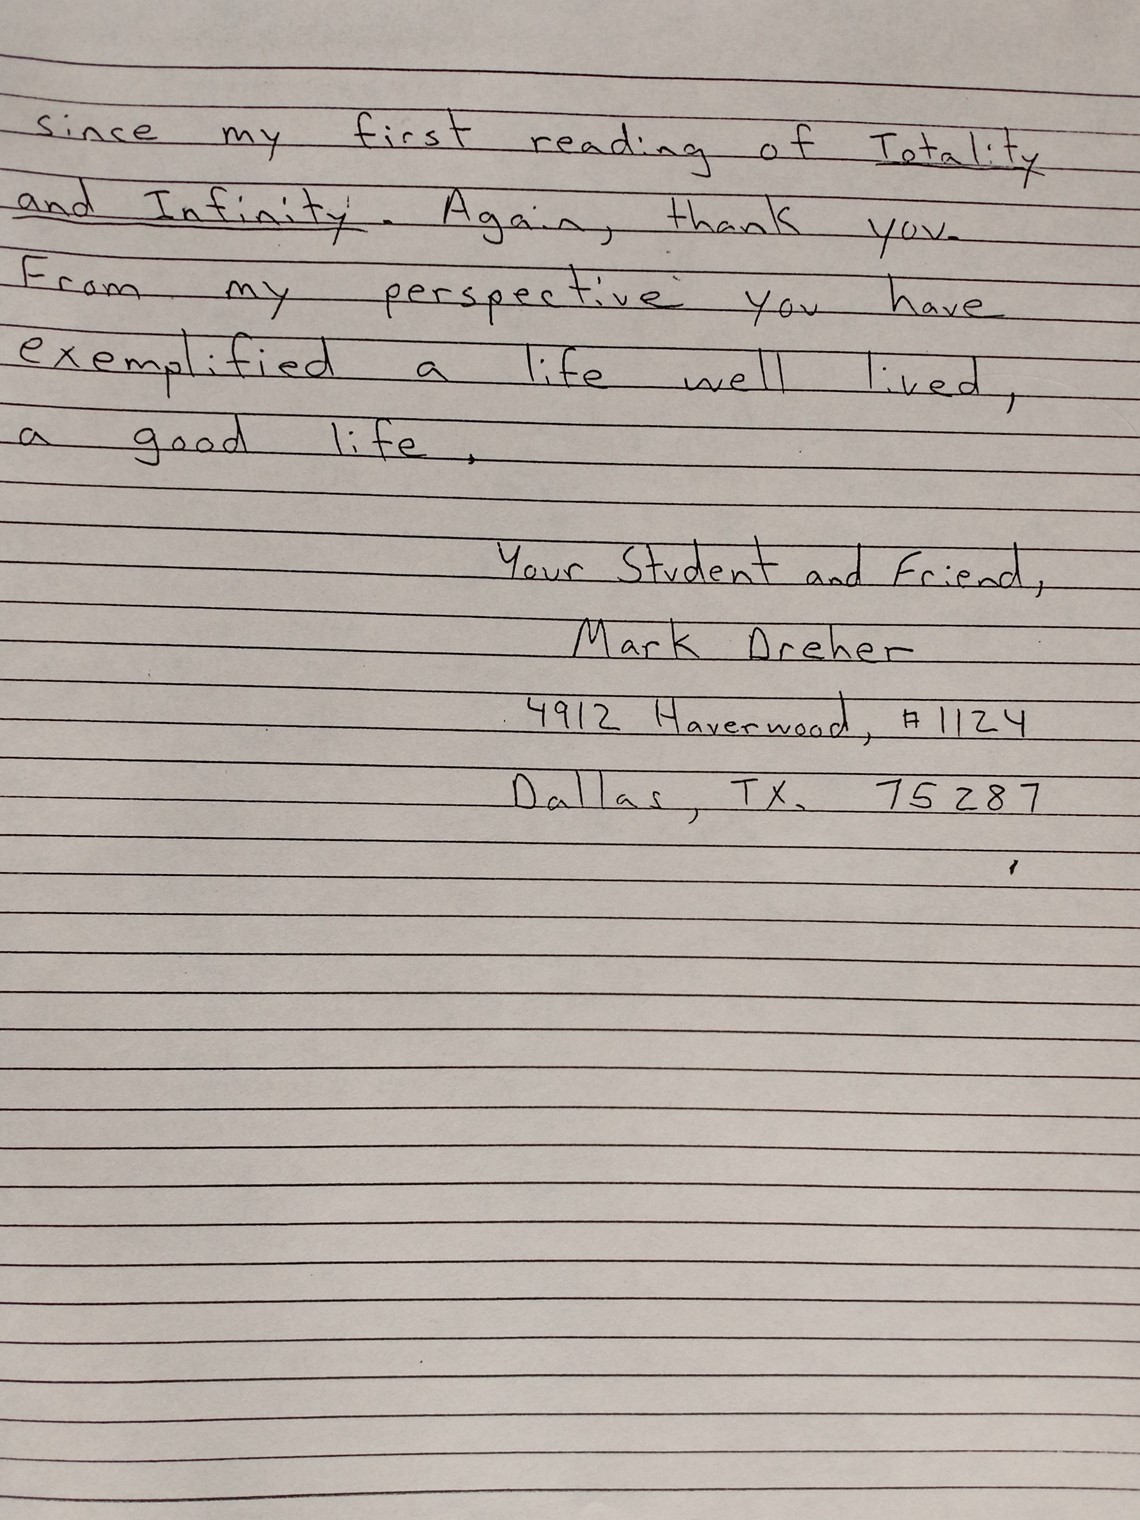 since my first reading of Totality
and Infinity. Again, thank you.
From my perspective you have
exemplified a life well lived,
a good life.
Your Student and Friend,
Mark Dreher
4912 Haverwood, #1124
Dallas, TX. 75287